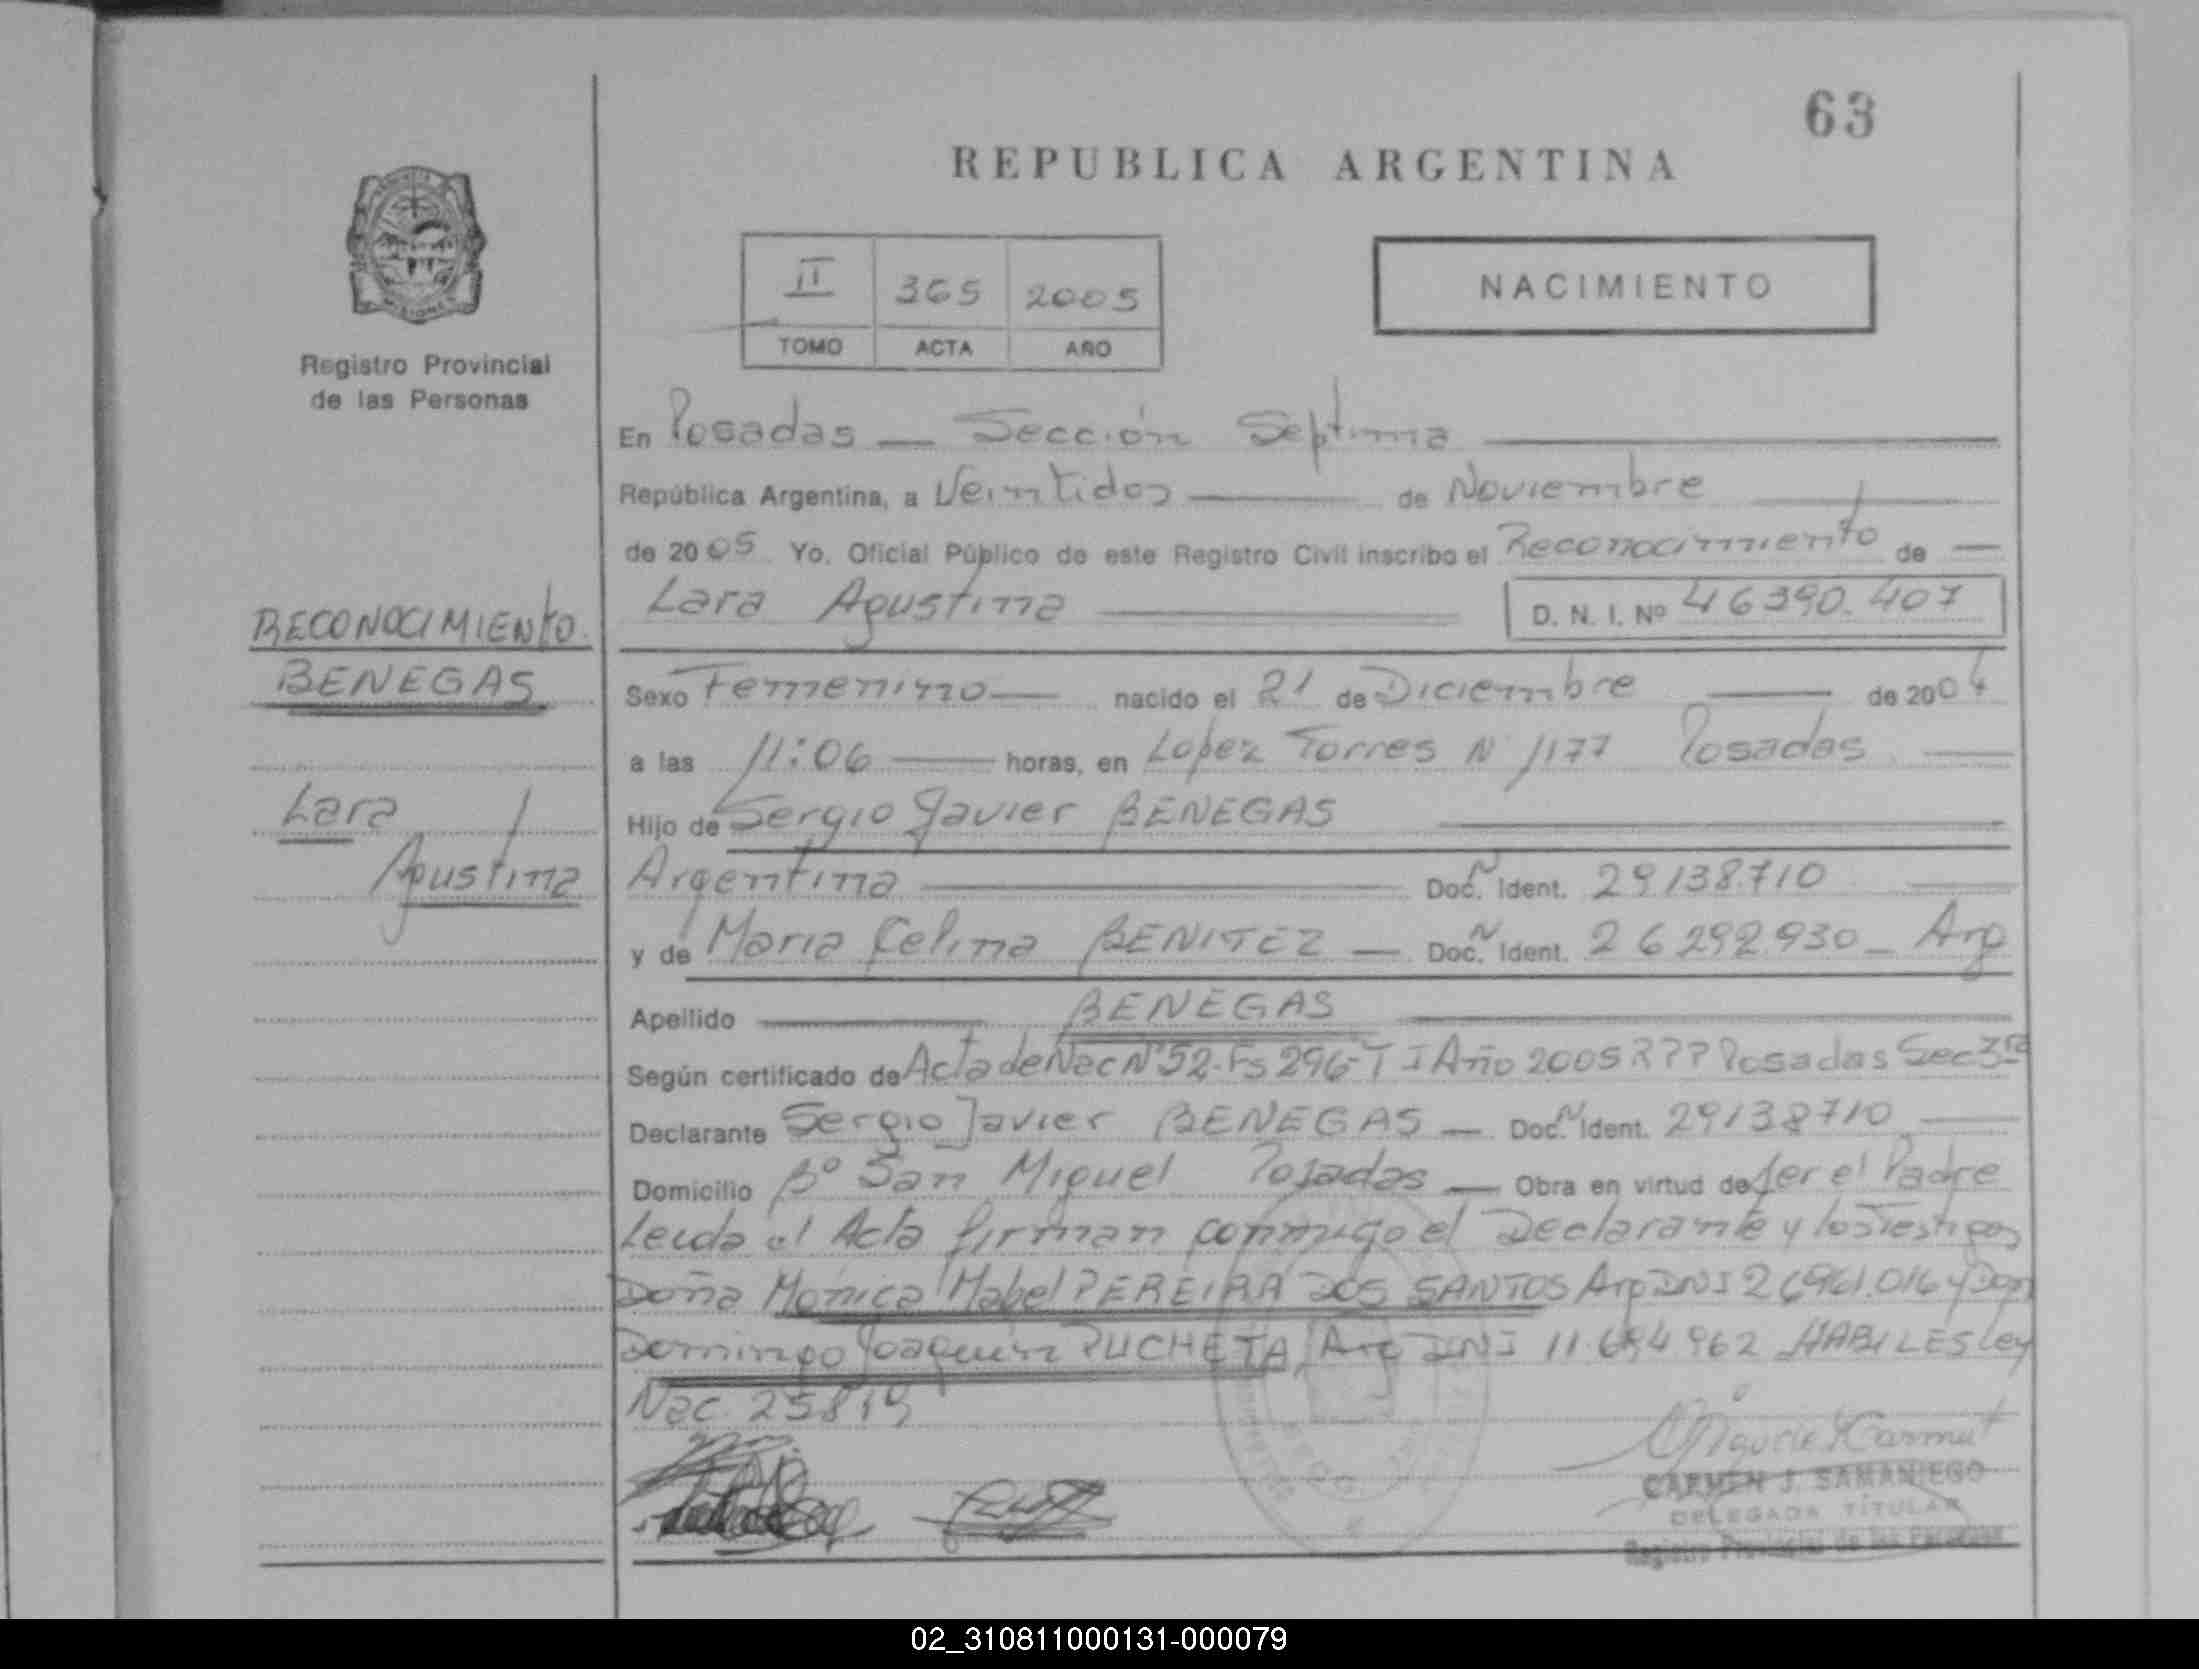 63
REPUBLICA ARGENTINA
II 365 2005
TOMO ACTA AÑO
NACIMIENTO
Registro Provincial
de las Personas
En Posadas — Sección Septima
República Argentina, a Veintidos de Noviembre
de 2005 Yo, Oficial Público de este Registro Civil inscribo el Reconocimiento de
Lara Agustina D. N. I. Nº 46390.407
RECONOCIMIENTO
BENEGAS
Lara
Agustina
Sexo Femenino nacido el 21 de Diciembre de 2004
a las 11:06 horas, en Lopez Torres N 1177 Posadas
Hijo de Sergio Javier BENEGAS
Argentina Doc. Ident. 29138.710
y de Maria Celina BENITEZ — Doc. Ident. 26292.930 — Arg
Apellido BENEGAS
Según certificado de Acta de Nac Nº 52-Fs 296-T I Año 2005 RPP Posadas Sec 3ra
Declarante Sergio Javier BENEGAS — Doc. Ident. 29138710
Domicilio Bº San Miguel Posadas — Obra en virtud de ser el Padre
Leida el Acta firman conmigo el Declarante y los Testigos
Doña Monica Mabel PEREIRA DOS SANTOS Arg DNI 26961.016 y Don
Domingo Joaquin PUCHETA Arg DNI 11.694962 HABILES Ley
Nac. 25819
CARMEN J. SAMANIEGO
DELEGADA TITULAR
Registro Provincial de las Personas
02_310811000131-000079